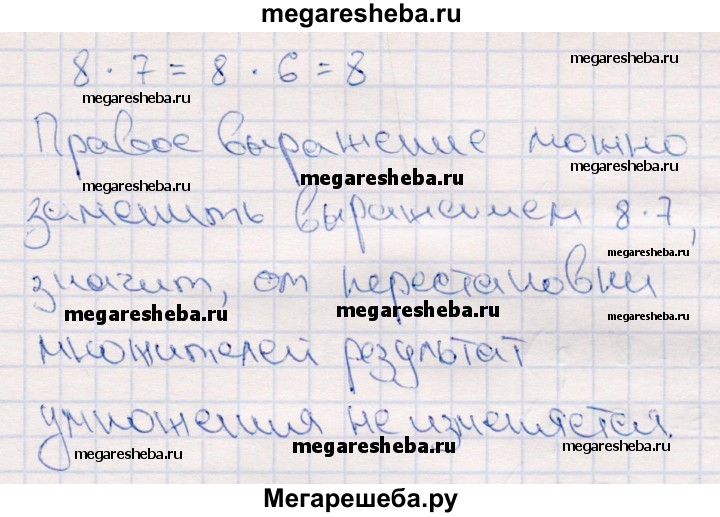 megaresheba.ru
8 · 7 = 8 · 6 = 8
megaresheba.ru
megaresheba.ru
Правое выражение можно
megaresheba.ru
megaresheba.ru
megaresheba.ru
заменить выражением 8 · 7,
megaresheba.ru
значит, от перестановки
megaresheba.ru
megaresheba.ru
megaresheba.ru
множителей результат
megaresheba.ru
megaresheba.ru
умножения не изменяется.
megaresheba.ru
megaresheba.ru
megaresheba.ru
Мегарешеба.ру